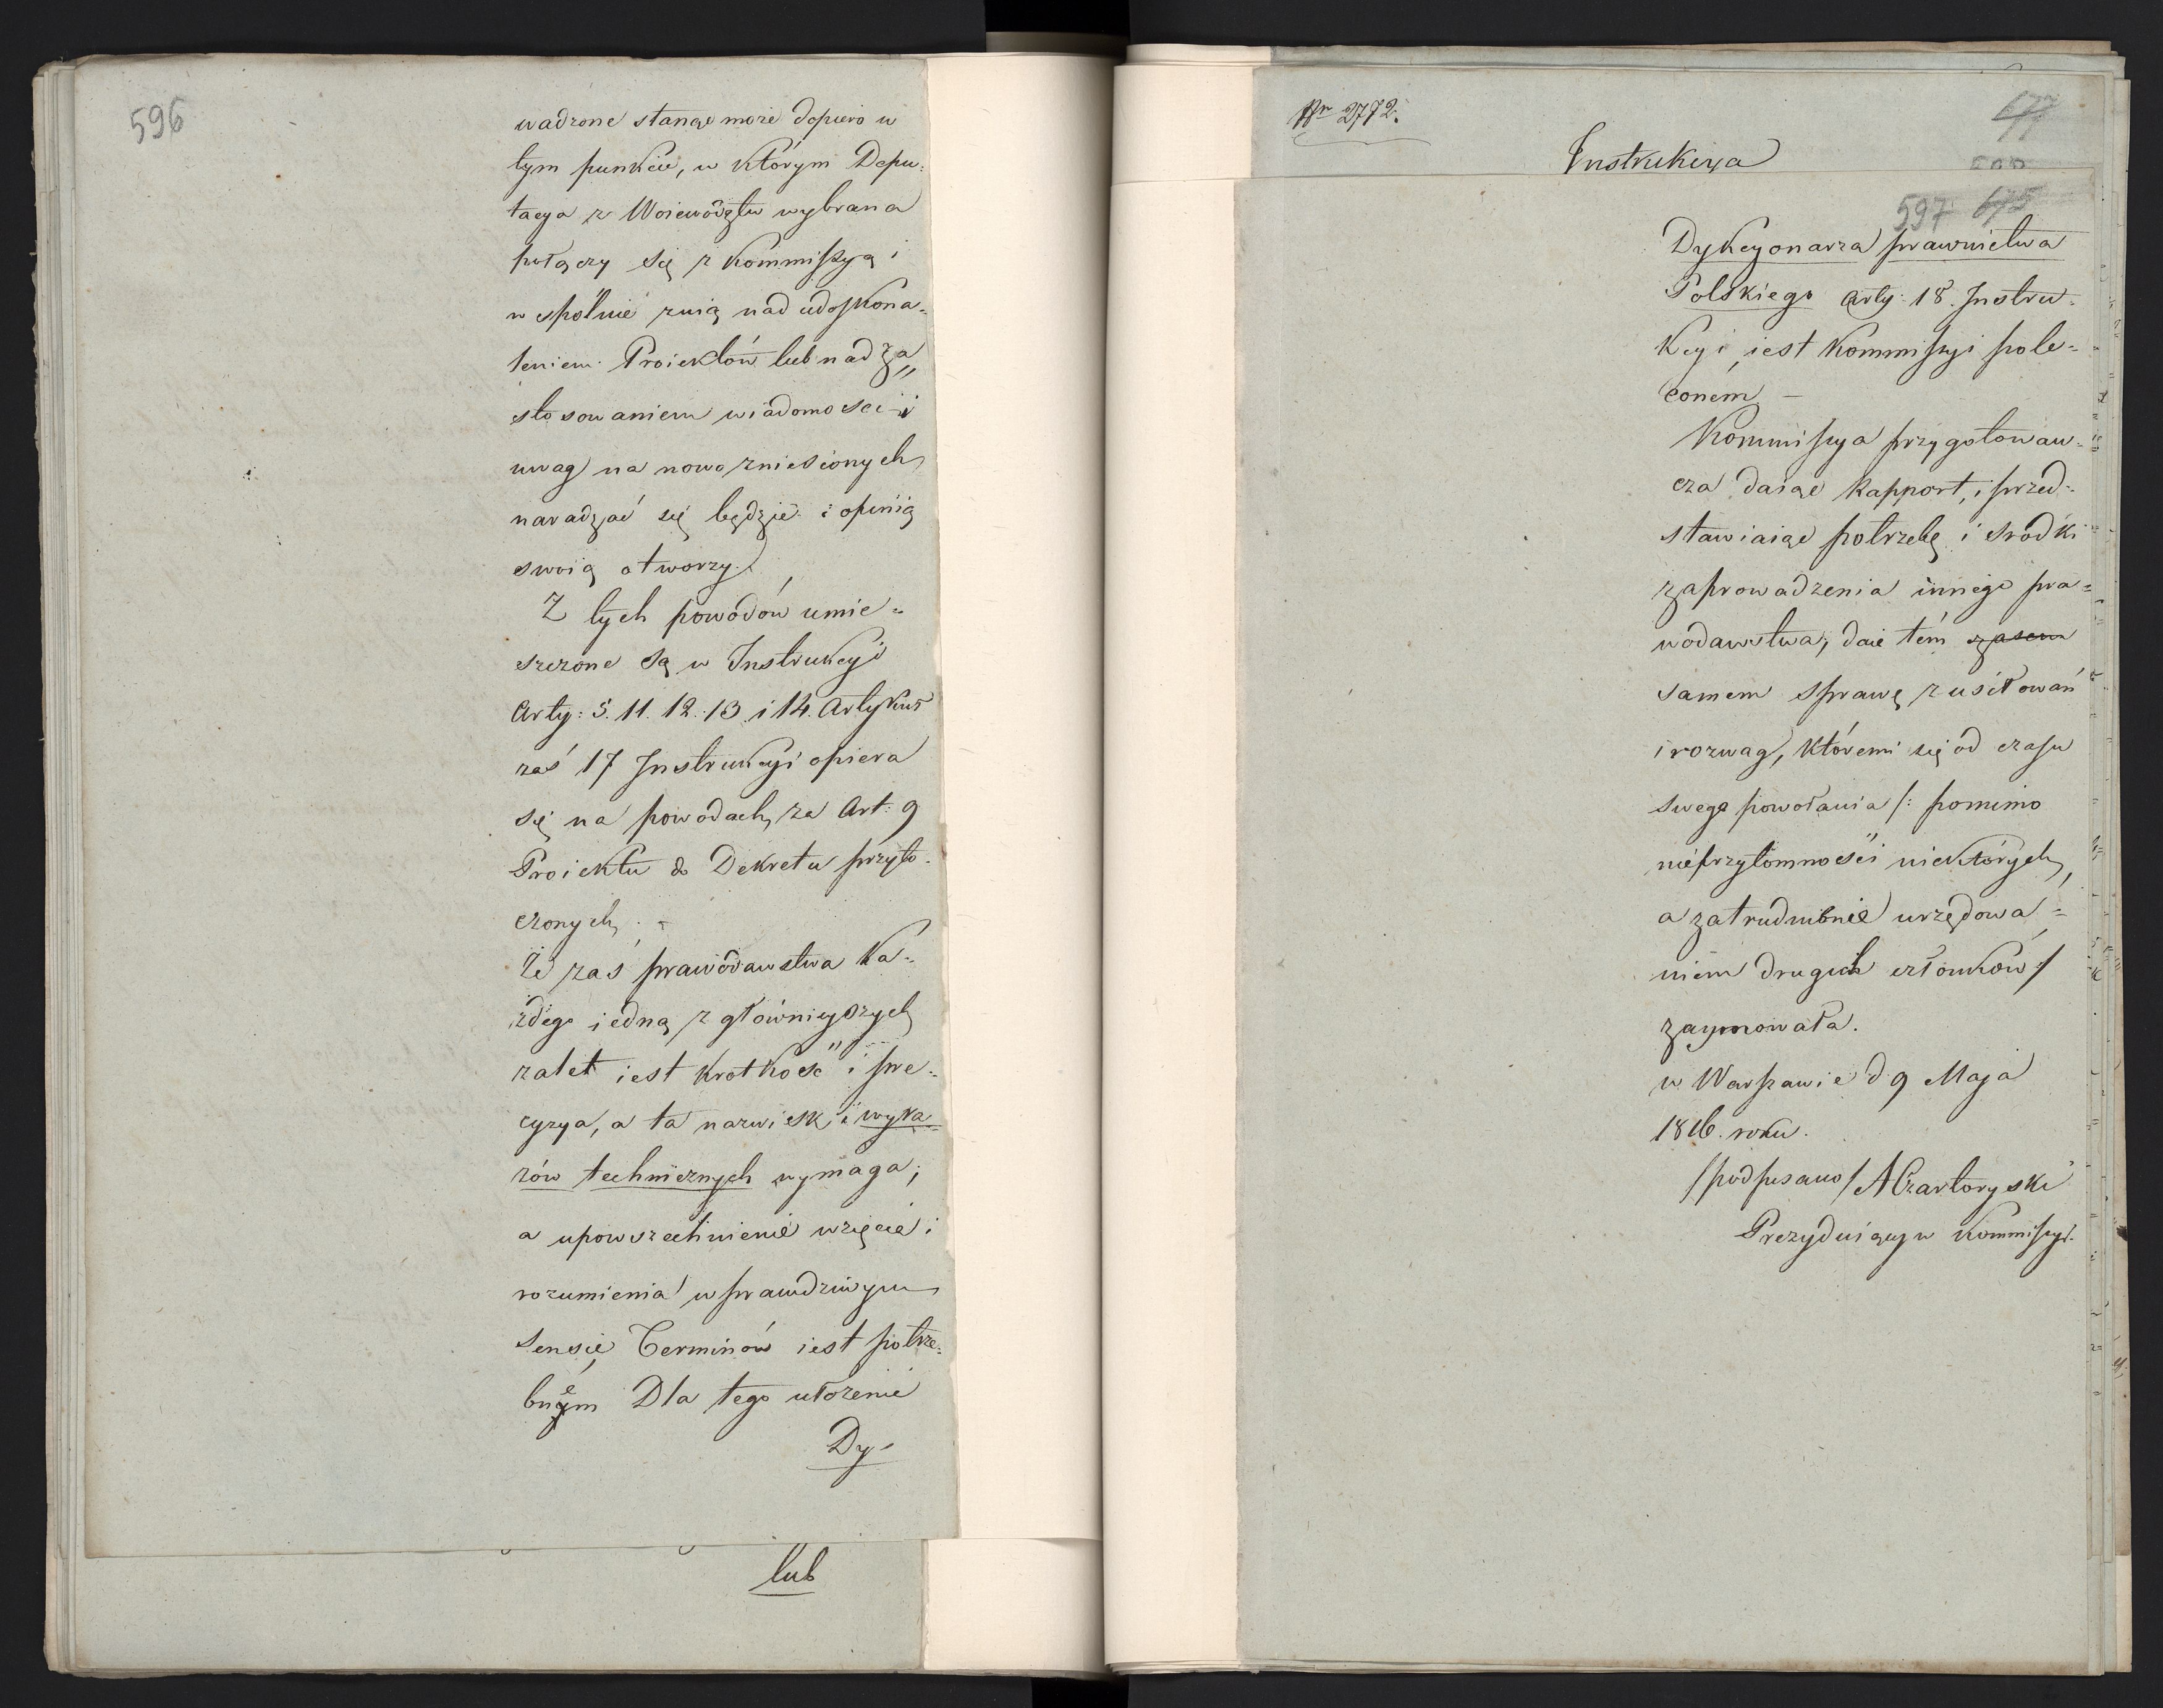 596
wadzone stanąć może dopiero w
tym punkcie, w którym Depu-
tacya z Woiewództw wybrana
połączy się z Kommissyą i
wspolnie z nią nad udoskona-
leniem Proiektów lub nad za„
stosowaniem wiadomosci i
uwag na nowo zniesionych
naradzać się będzie i opinią
swoią otworzy.
Z tych powodów umie-
szczone są w Instrukcyi
Arty: 5. 11. 12. 13. i 14. Artykuł
zaś 17 Instrukcyi opiera
się na powodach, za Art: 9
Proiektu do Dekretu przyto-
czonych. -
Że zaś prawodawstwa Ka-
żdego iedną z głównieyszych
zalet iest krotkość i pre-
cyzya, a ta nazwisk i wyra-
zów technicznych wymaga;
a upowszechnienie wzięcia i
rozumienia w prawdziwym
sensie, Terminów iest potrze-
bnem Dla tego ułożenie
Dy-
lub
Nr 2772.
677
Instrukcya
597 675
Dykcyonarza prawnictwa
Polskiego Arty: 18. Instru-
kcyi, iest Kommissyi pole-
conem -
Kommissya przygotowaw-
cza daiąc Rapport, i przed-
stawiaiąc potrzebę i srodki
zaprowadzenia innego pra-
wodawstwa, daie tém czasem
samem sprawę z usiłowań
i rozwag, któremi się od czasu
swego powołania /: pomimo
nieprzytomności niektórych,
a zatrudnienie urzędowa-
niem drugich członków :/
zaymowała.
w Warszawie d 9 Maja
1816. roku.
/podpisano/ A Czartoryski
Prezyduiący w Kommissyi.